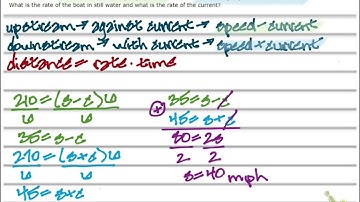 What is the rate of the boat in still water and what is the rate of the current?
upstream → against current → speed - current
downstream → with current → speed + current
distance = rate · time
210 = (s-c) 6
6 6
35 = s-c
270 = (s+c) 6
6 6
45 = s+c
+ 35 = s-c
45 = s+c
80 = 2s
2 2
s = 40 mph